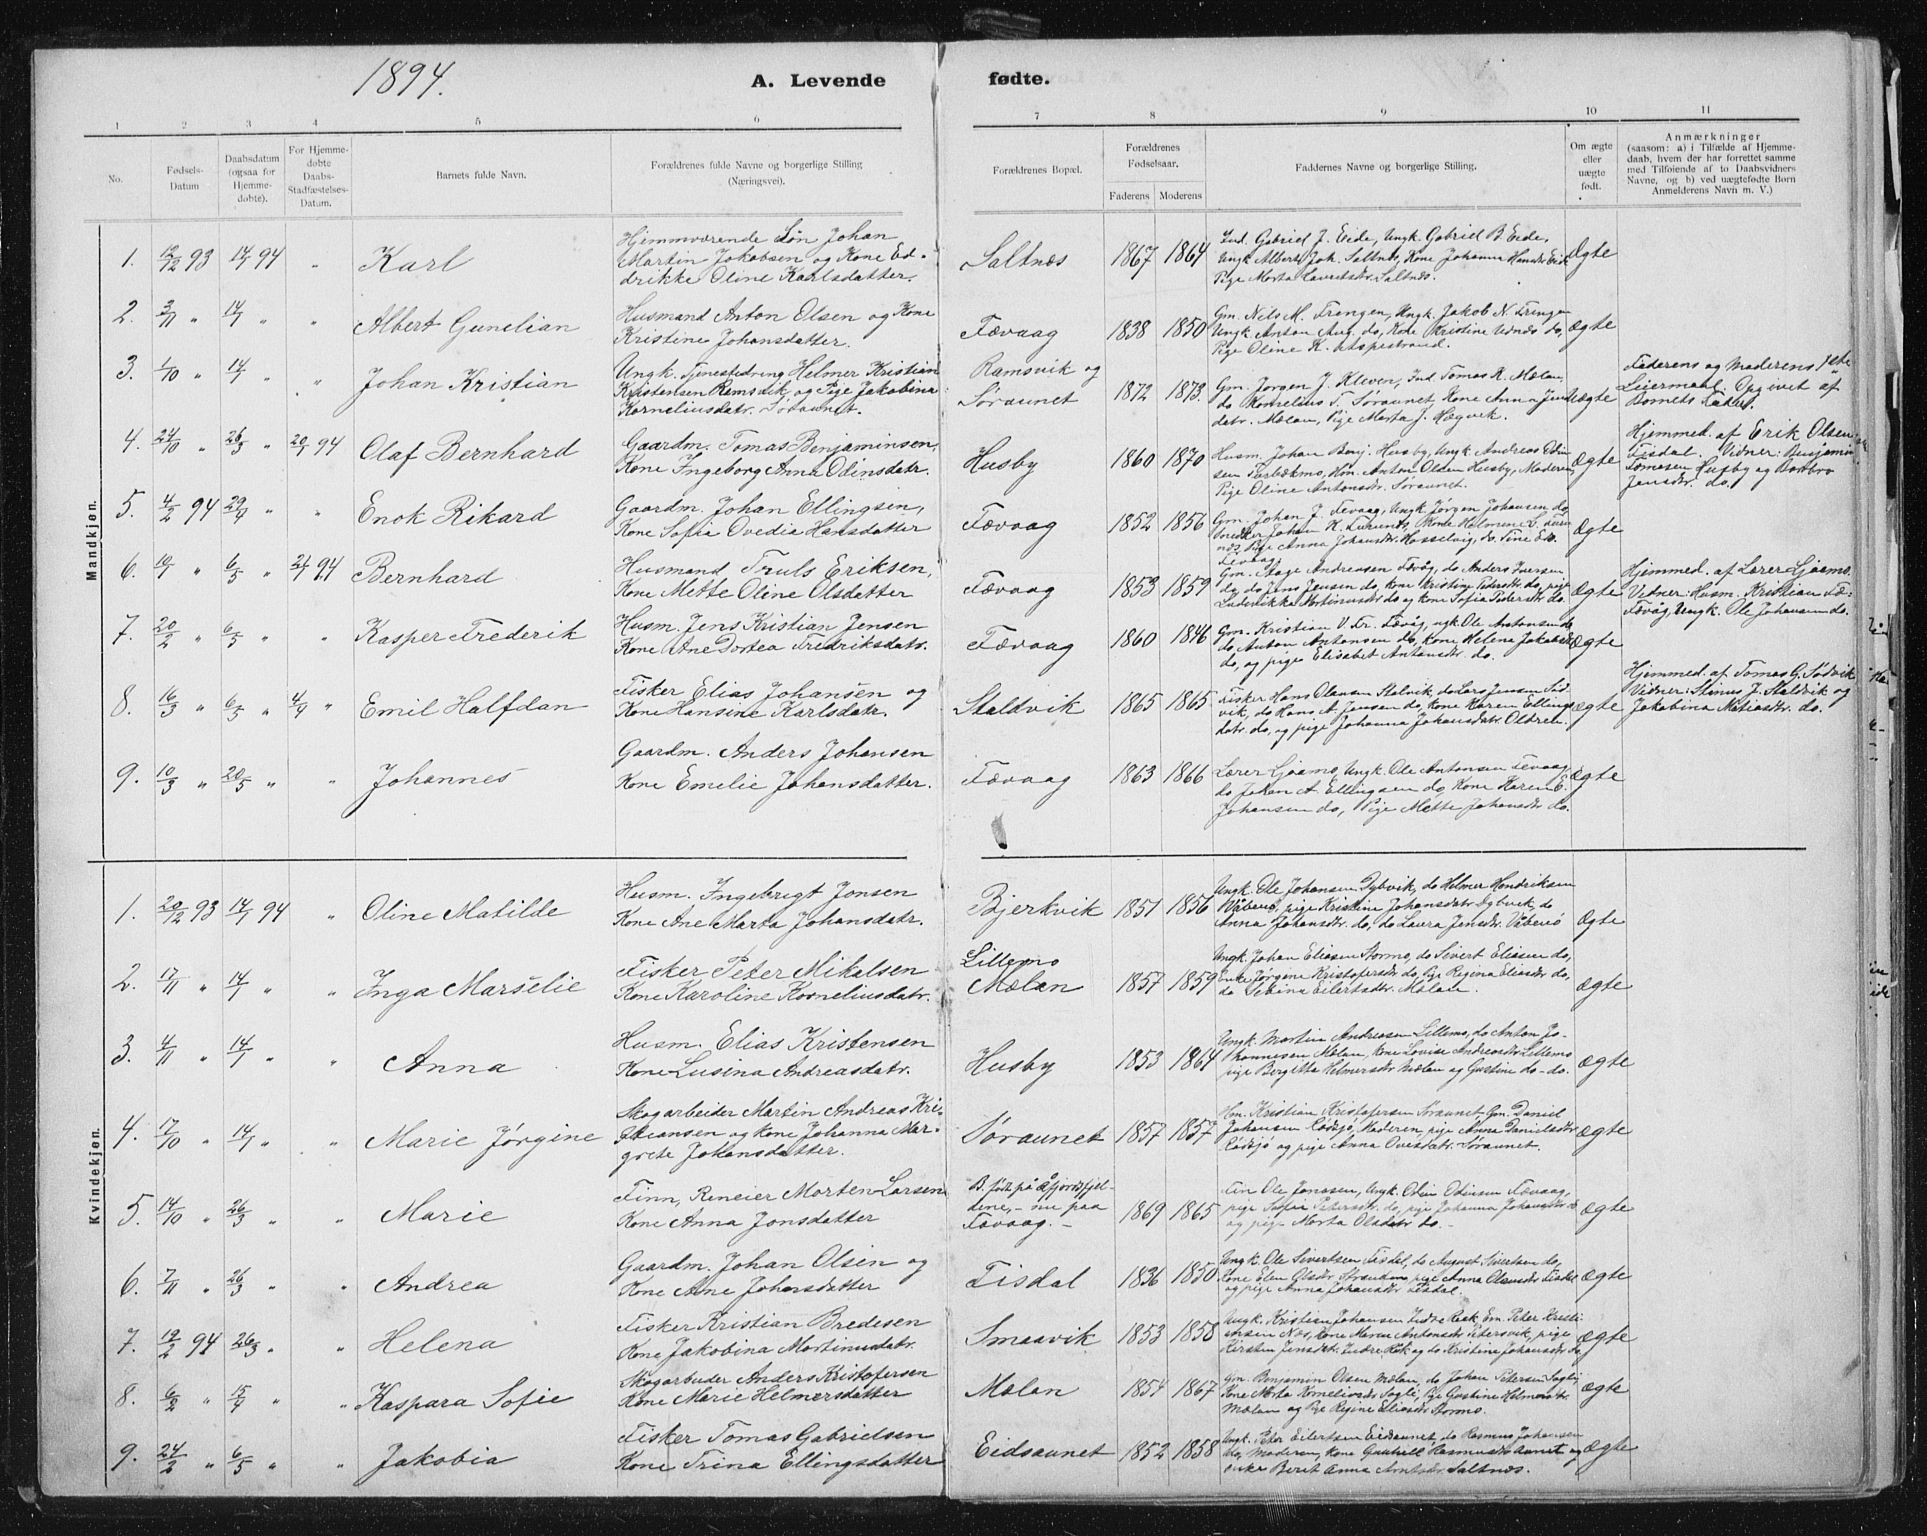 1894.
A. Levende fødte.
1 2 3 4 5 6 7 8 9 10 11
No.
Fødsels-
Datum
Daabsdatum
(ogsaa for
Hjemme-
døbte).
For Hjemme-
døbte
Daabs-
Stadfæstelses-
Datum.
Barnets fulde Navn.
Forældrenes fulde Navne og borgerlige Stilling
(Næringsvei).
Forældrenes Bopæl.
Forældrenes
Fødselsaar.
Faderens Moderens
Faddernes Navne og borgerlige Stilling.
Om ægte
eller
uægte
født.
Anmærkninger
(saasom: a) i Tilfælde af Hjemme-
daab, hvem der har forrettet samme
med Tilføiende af to Daabsvidners
Navne, og b) ved uægtefødte Børn
Anmelderens Navn m. V.)
Mandkjøn.
1. 12/12 93 14/1 94 " Karl
Hjemmværende Søn Johan
Martin Jakobsen og Kone Ed-
drikke Oline Karlsdatter.
Saltnæs 1867 1864
Ind. Gabriel J. Eide, Ungk. Gabriel B. Eide,
Ungk. Albert Joh. Saltnæs, Kone Johanna Hansdtr Eide
Pige Marta Lauritsdtr. Saltnæs.
Ægte
2. 3/11 " 14/1 " " Albert Gunelian
Husmand Anton Olsen og Kone
Kristine Johansdatter.
Fævaag 1838 1850
Gm. Nils M. Frengen, Ungk. Jakob N. Frengen
Ungk. Anton Aug. do, Kone Kristine Vednæs do,
Pige Oline K. Aspestrand.
Ægte
3. 1/10 " 14/1 " " Johan Kristian
Ungk. Tjenestedreng Helmer Kristian
Kristensen Ramsvik og Pige Jakobine
Korneliusdatr. Søraunet.
Ramsvik og
Søraunet 1872 1873
Gm. Jørgen J. Kleven, Ind Tomas R. Mælan,
do Kornelius T. Søraunet, Kone Anna Jens
datr. Mælan, Pige Marta J. Hægvik.
uægte
Faderens og Moderens 1ste
Leiermaal. Opgivet af
Barnets Fader.
4. 24/10 " 26/3 " 20/1 94 Olaf Bernhard
Gaardm. Tomas Benjaminsen,
Kone Ingeborg Anna Odinsdatr.
Husby 1860 1870
Husm. Johan Benj. Husby, Ungk Andreas Odin
sen Husby, Moderen,
Pige Oline Antonsdtr. Søraunet.
Ægte
Hjemmed. af Erik Olsen
Fisdal. Vidner: Benjamin
Tomasen Husby og Barbro
Jensdtr. do.
5. 4/2 94 29/4 " " Enok Rikard
Gaardm. Johan Ellingsen,
Kone Sofia Ovedia Hansdatter
Fævaag 1852 1856
Gm. Johan J. Fevaag, Ungk Jørgen Johansen do,
Pige Anna Johansdtr. Hasselvig, do. Tine
Fevaag.
Ægte
6. 10/1 " 6/5 " 21/1 94 Bernhard
Husmand Truls Eriksen,
Kone Mette Oline Olsdatter
Fævaag 1853 1859
Gm. Aage Andreasen Fævåg, do Anders Iversen
do, do Jens Jensen do, kone Kristine Pedersdtr do, pige
Ludvikka Martinusdtr do og kone Sofia Pedersdtr do.
Ægte
Hjemmed. af Lærer Gjøsmo.
Vidner: Husm. Kristian Fr.
Fævåg, Ungk. Ole Johansen do.
7. 20/2 " 6/5 " " Kasper Frederik
Husm. Jens Kristian Jensen
Kone Ane Dortea Fredriksdatr.
Fævaag 1860 1846
Gm. Kristian V. Fr. Fævåg, ugk Ole Antonsen do
do, Anton Antonsen do, kone Helena Jakobsdtr
do, og pige Elisabet Antonsdtr. do.
Ægte
8. 16/3 " 6/5 " 4/4 " Emil Halfdan
Fisker Elias Johansen og
Kone Hansine Karlsdatr.
Staldvik 1865 1865
Fisker Hans Olausen Stalvik, do Lars Jensen Sød
vik, do Hans A. Jensen do, kone Karen Ellings
datr. do, og pige Johanna Johansdatr. Oldren.
Ægte
Hjemmed. af Tomas G. Sødvik
Vidner: Stinus J. Staldvik og
Jakobina Matiasdtr. do.
9. 10/3 " 20/5 " " Johannes
Gaardm. Anders Johansen
Kone Emelie Johansdatter.
Fævaag 1863 1866
Lærer Gjøsmo, Ungk. Ole Antonsen Fevaag,
do Johan A. Ellingsen do, Kone Karen E.
Johansen do, Pige Mette Johansdtr do.
Ægte
Kvindekjøn.
1. 20/12 93 14/1 94 " Oline Matilde
Husm. Ingebrigt Jonsen
Kone Ane Marta Johansdatr.
Bjerkvik 1851 1856
Ungk. Ole Johansen Dybvik, do Helmer Hendriksen
Vaberø, pige Kristine Johansdatr Dybvik, do
Anna Johansdtr. do, do Laura Jensdtr. Våberø
Ægte
2. 17/11 " 14/1 " " Inga Marselie
Fisker Peter Mikalsen
Kone Karoline Korneliusdatr.
Lillemo
Mælan 1857 1859
Ungk. Johan Eliasen Stormo, do Sivert Eliasen do,
Enke Jørgine Kristofersdtr do, Pige Regina Eliasdtr do,
do Sebina Eilertsdtr. Mælan.
Ægte
3. 4/11 " 14/1 " " Anna
Husm. Elias Kristensen
Kone Lusina Andreasdatr.
Husby 1853 1864
Ungk. Martin Andreasen Lillemo, do Anton Jo-
hannesen Mælan, kone Lovise Andreasdtr Lillemo
pige Bergitta Helmersdtr Mælan og Gustine do - do.
Ægte
4. 17/10 " 14/1 " " Marie Jørgine
Skogarbeider Martin Andreas Kri-
stiansen og kone Johanna Mar-
grete Johansdatter.
Søraunet 1857 1857
Hm. Kristian Kristofersen Søraunet, Gm. Daniel
Johansen Rødsjø, Moderen, pige Anna Danielsdtr
Rødsjø og pige Anna Ovesdatr. Søraunet.
Ægte
5. 14/10 " 26/3 " " Marie
Finn, Reneier Morten Larsen
Kone Anna Jonsdatter
B. født på Åfjordsfjel-
dene, - nu paa
Fævaag. - 1869 1865
Fin Ole Jonasen, Ungk. Odin Odinsen Fævaag,
pige Sofia Petersdtr. do, pige Johanna Johansdtr do
og pige Marta Olsdatr do. -
Ægte
6. 7/11 " 26/3 " " Andrea
Gaardm. Johan Olsen og
Kone Ane Johansdatter
Fisdal 1836 1850
Ungk. Ole Sivertsen Fisdal, do August Sivertsen do,
Kone Elen Olsdtr Strandmo, pige Anna Olausdtr Fisdal
og pige Anna Johansdtr Fisdal.
Ægte
7. 12/2 94 26/3 " " Helena
Fisker Kristian Bredesen
Kone Jakobina Martinusdatr.
Smaavik 1853 1858
Ungk. Kristian Johansen Indre Rak, Gm. Peter Kristi-
ansen Næs, Kone Maren Antonsdtr Petersvik, pige
Kirsten Jensdtr. Indre Rak og do Kristine Johansdtr do
Ægte
8. 6/2 " 15/4 " " Kaspara Sofie
Skogarbeider Anders Kristofersen
Kone Marie Helmersdatter
Mælan 1854 1867
Gm. Benjamin Olsen Mælan, do Johan Petersen Sagli,
Kone Marta Korneliusdtr Sagli, Pige Gustine Helmersdtr
Mælan og Pige Regine Eliasdtr Stormo.
Ægte
9. 24/2 " 6/5 " " Jakobia
Fisker Tomas Gabrielsen
Kone Trina Ellingsdatter
Eidsaunet 1852 1858
Ungk. Peter Eilertsen Eidsaunet, do Rasmus Johansen
do, Moderen, kone Gunhild Rasmusdtr Aunet og
enke Berit Anna Arntsdtr. Saltnæs.
Ægte